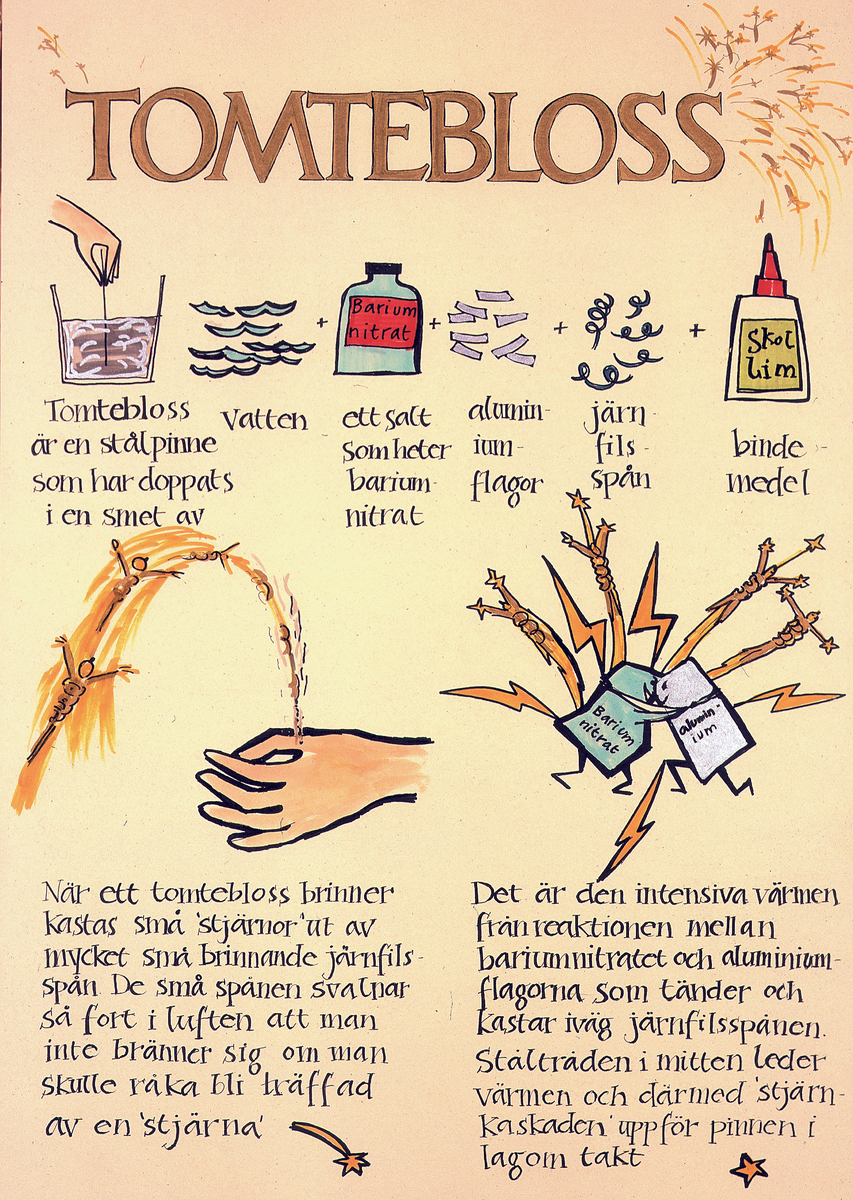 TOMTEBLOSS
Barium
nitrat
Skol
Lim
Tomtebloss
är en stålpinne
som har doppats
i en smet av
Vatten
ett salt
som heter
barium-
nitrat
alumin-
ium-
flagor
järn-
fils-
spån
binde-
medel
Barium
nitrat
alumin-
ium
När ett tomtebloss brinner
kastas små 'stjärnor' ut av
mycket små brinnande järnfils-
spån. De små spånen svalnar
så fort i luften att man
inte bränner sig om man
skulle råka bli träffad
av en 'stjärna'
Det är den intensiva värmen
från reaktionen mellan
bariumnitratet och aluminium-
flagorna som tänder och
kastar iväg järnfilsspånen.
Ståltråden i mitten leder
värmen och därmed 'stjärn-
kaskaden' uppför pinnen i
lagom takt